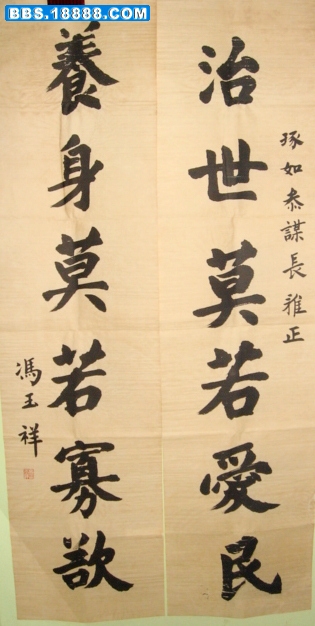 BBS.18888.COM
琢如叅謀長雅正
治世莫若愛民
養身莫若寡欲
馮玉祥